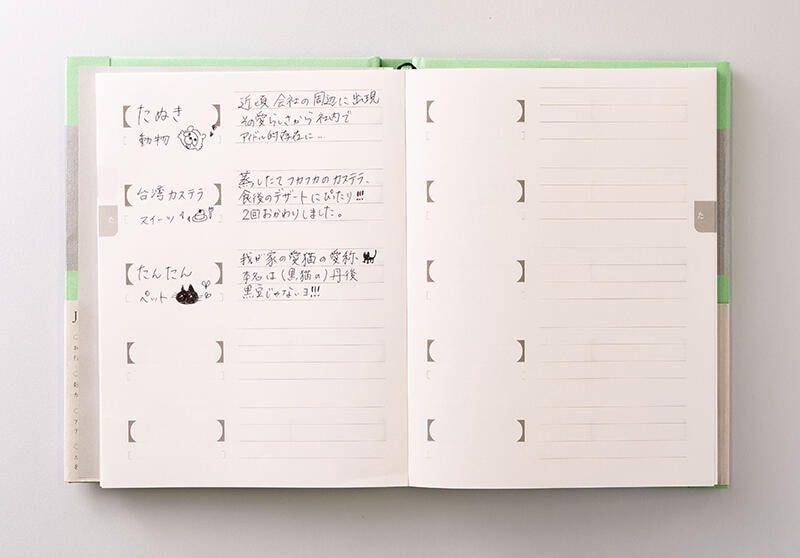 たぬき
動物
近頃 会社の周辺に出現
その愛らしさから社内で
アイドル的存在に…
台湾カステラ
スイーツ
蒸したてフカフカのカステラ、
食後のデザートにぴったり!!!
2回おかわりしました。
たんたん
ペット
我が家の愛猫の愛称、
本名は(黒猫の)丹後
黒豆じゃないヨ!!!
た
た
J